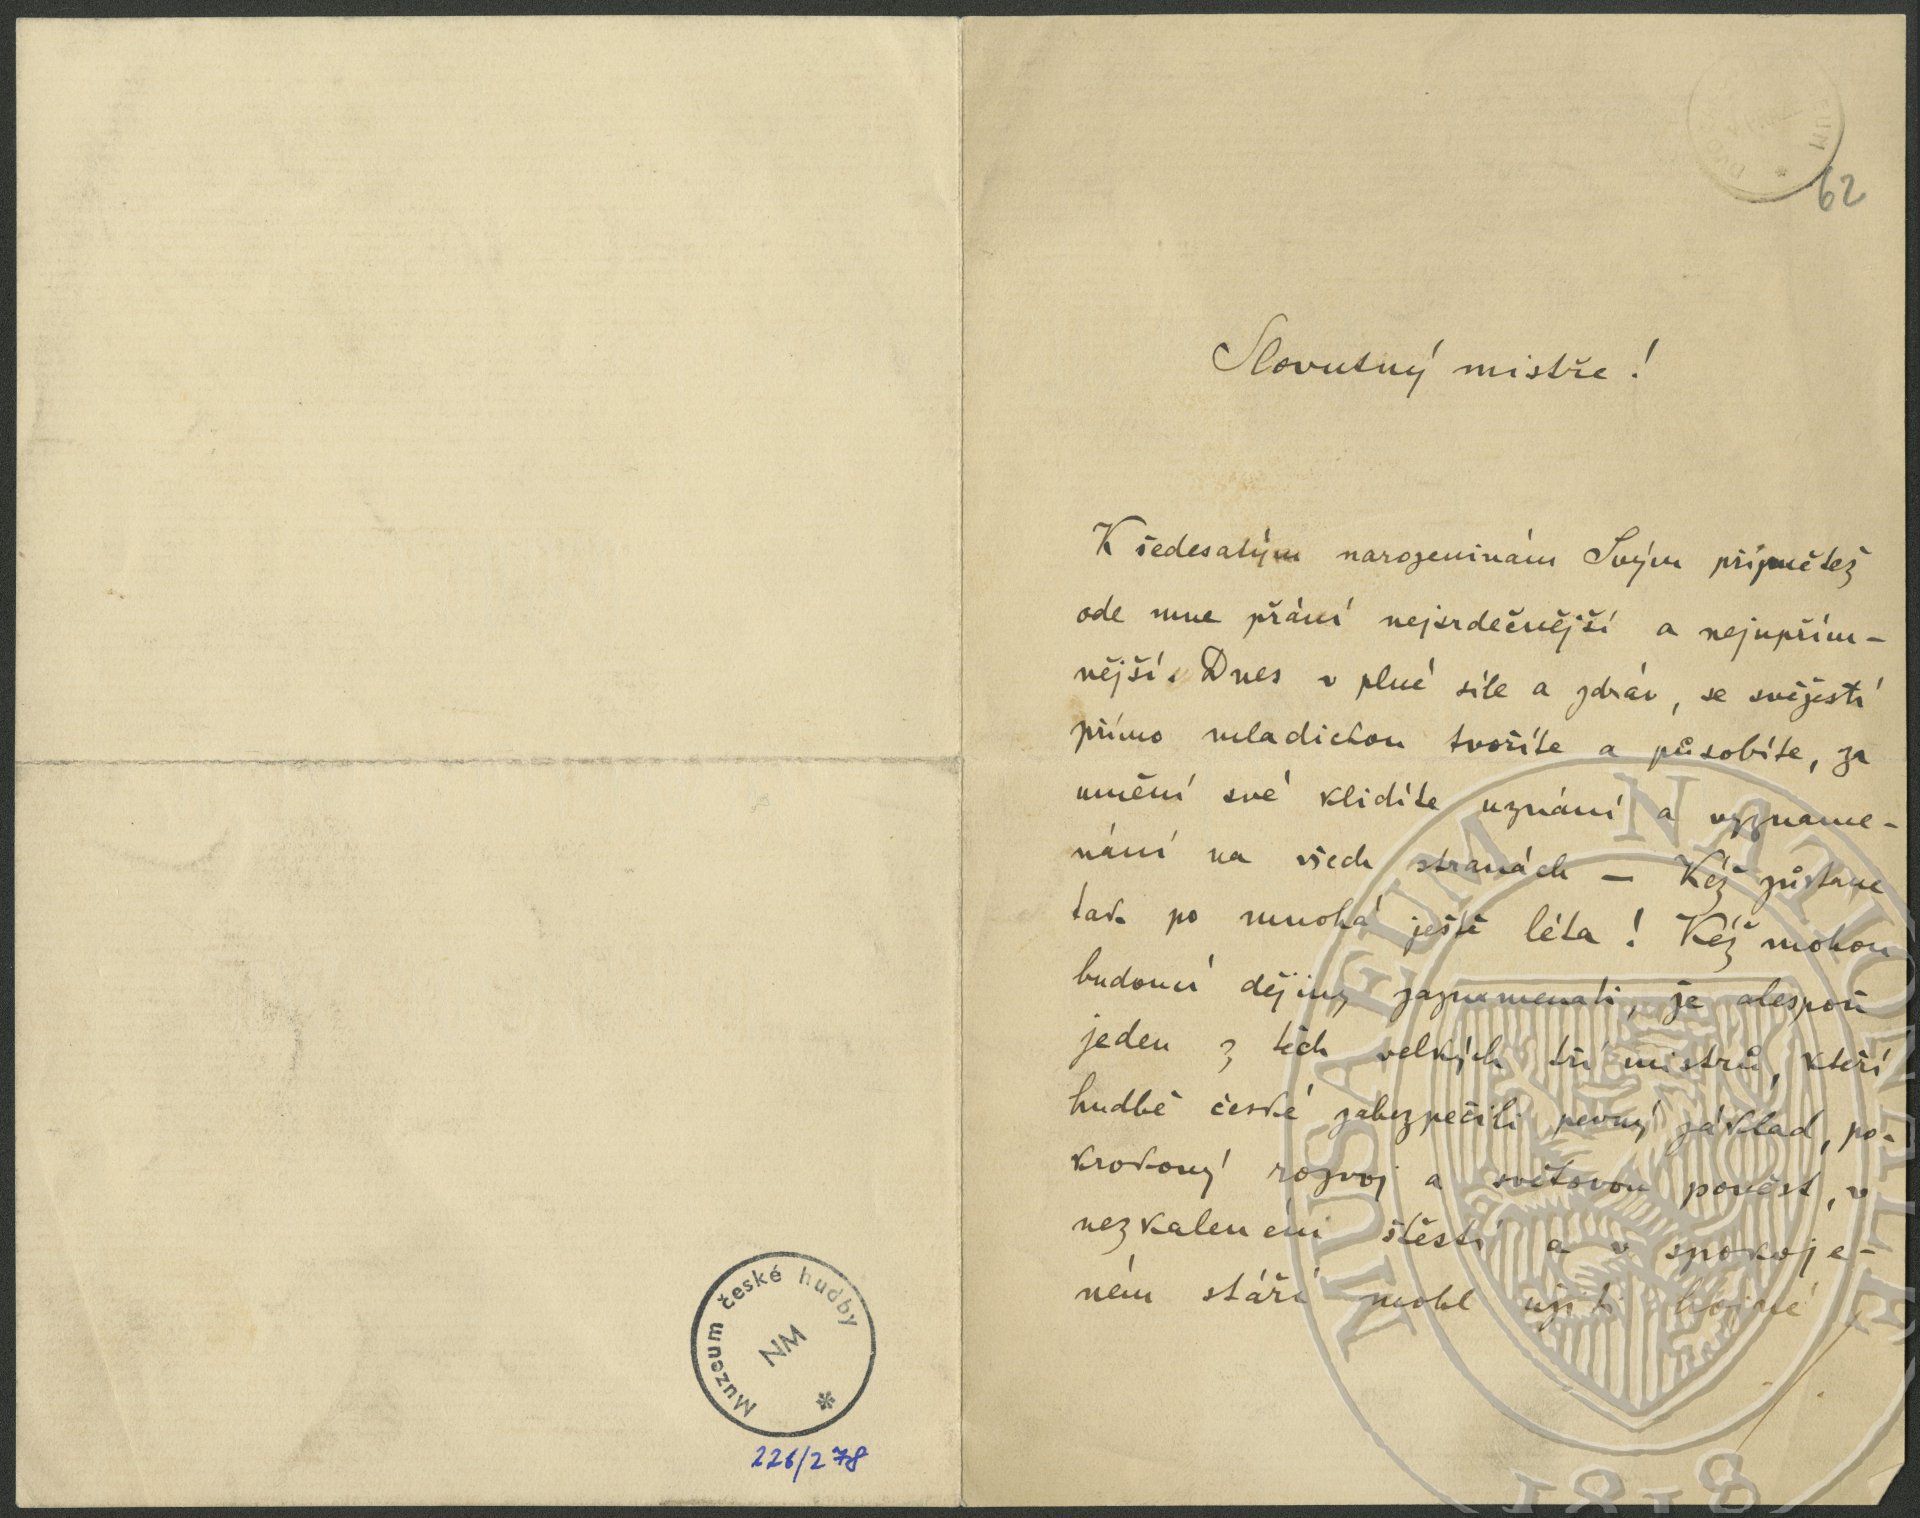 Muzeum české hudby
NM
*
226/278
62
Slovutný mistře!
K šedesatým narozeninám Svým přijmětež
ode mne přání nejsrdečnější a nejupřím-
nější. Dnes v plné síle a zdráv, se svěžestí
přímo mladickou tvoříte a působíte, za
umění své klidíte uznání a vyzname-
nání na všech stranách – Kéž zůstane
tak po mnohá ještě léta! Kéž mohou
budoucí dějiny zaznamenati, že alespoň
jeden z těch velkých tří mistrů, kteří
hudbě české zabezpečili pevný základ, po-
krokový rozvoj a světovou pověst, v
nezkaleném štěstí a v spokoje-
ném stáří mohl užíti hojné
MUSAEUM NATIONALE
1818